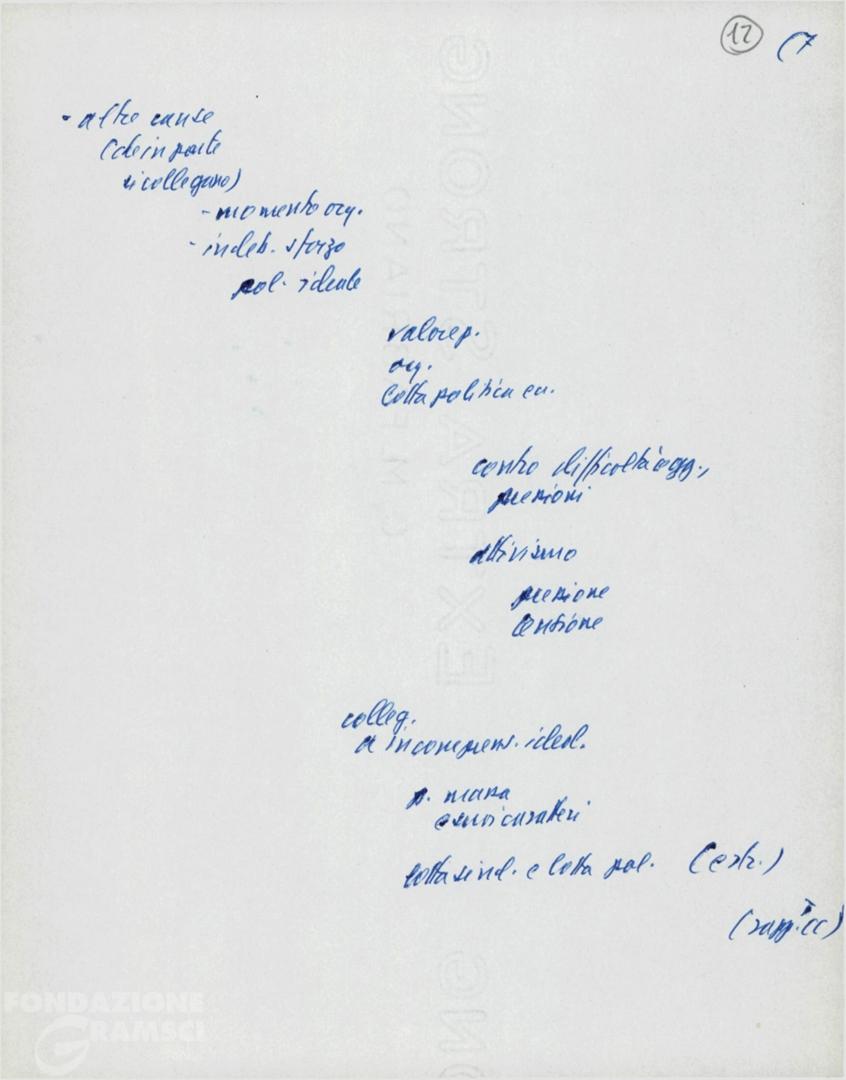 12 (7
- altre cause
(che in parte
si collegano)
- momento org.
- indeb. sforzo
pol. ideale
valore p.
org.
lotta politica ecc.
contro difficoltà ogg.,
pressioni
attivismo
pressione
tensione
colleg.
a incompens. ideol.
p. massa
e suoi caratteri
lotta sind. e lotta pol. (estr.)
(rapp. CC)
C. M. FABRIANO
EXTRA STRONG
FONDAZIONE
GRAMSCI